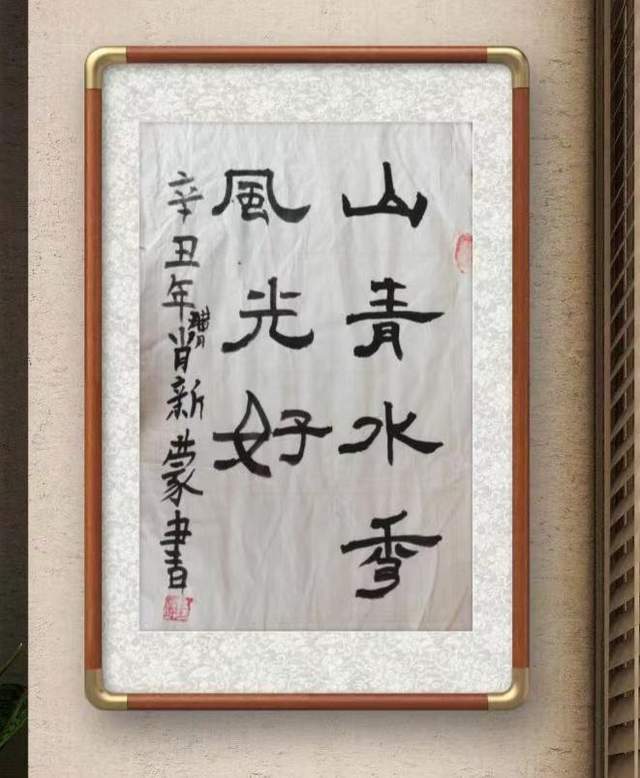 山青水秀
風光好
辛丑年肖新蒙書